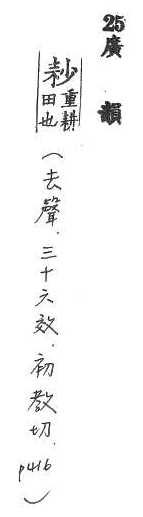 25廣韻
耖重耕
田也
(去聲.三十六效.初教切.p416)